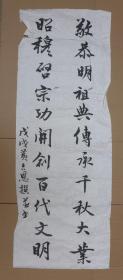 敬恭明祖典傳承千秋大業
昭穆啓宗功開創百代文明
戊戌黄志恩撰書